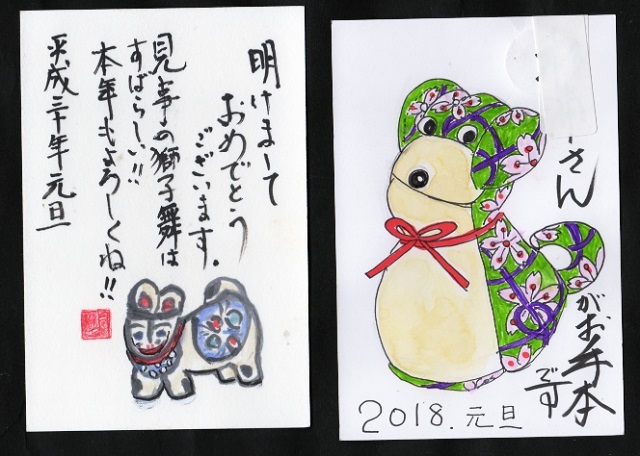 明けまして
おめでとう
ございます。
見事な獅子舞は
すばらしい!!
本年もよろしくね!!
平成三十年元旦
さん
がお手本
です
2018.元旦